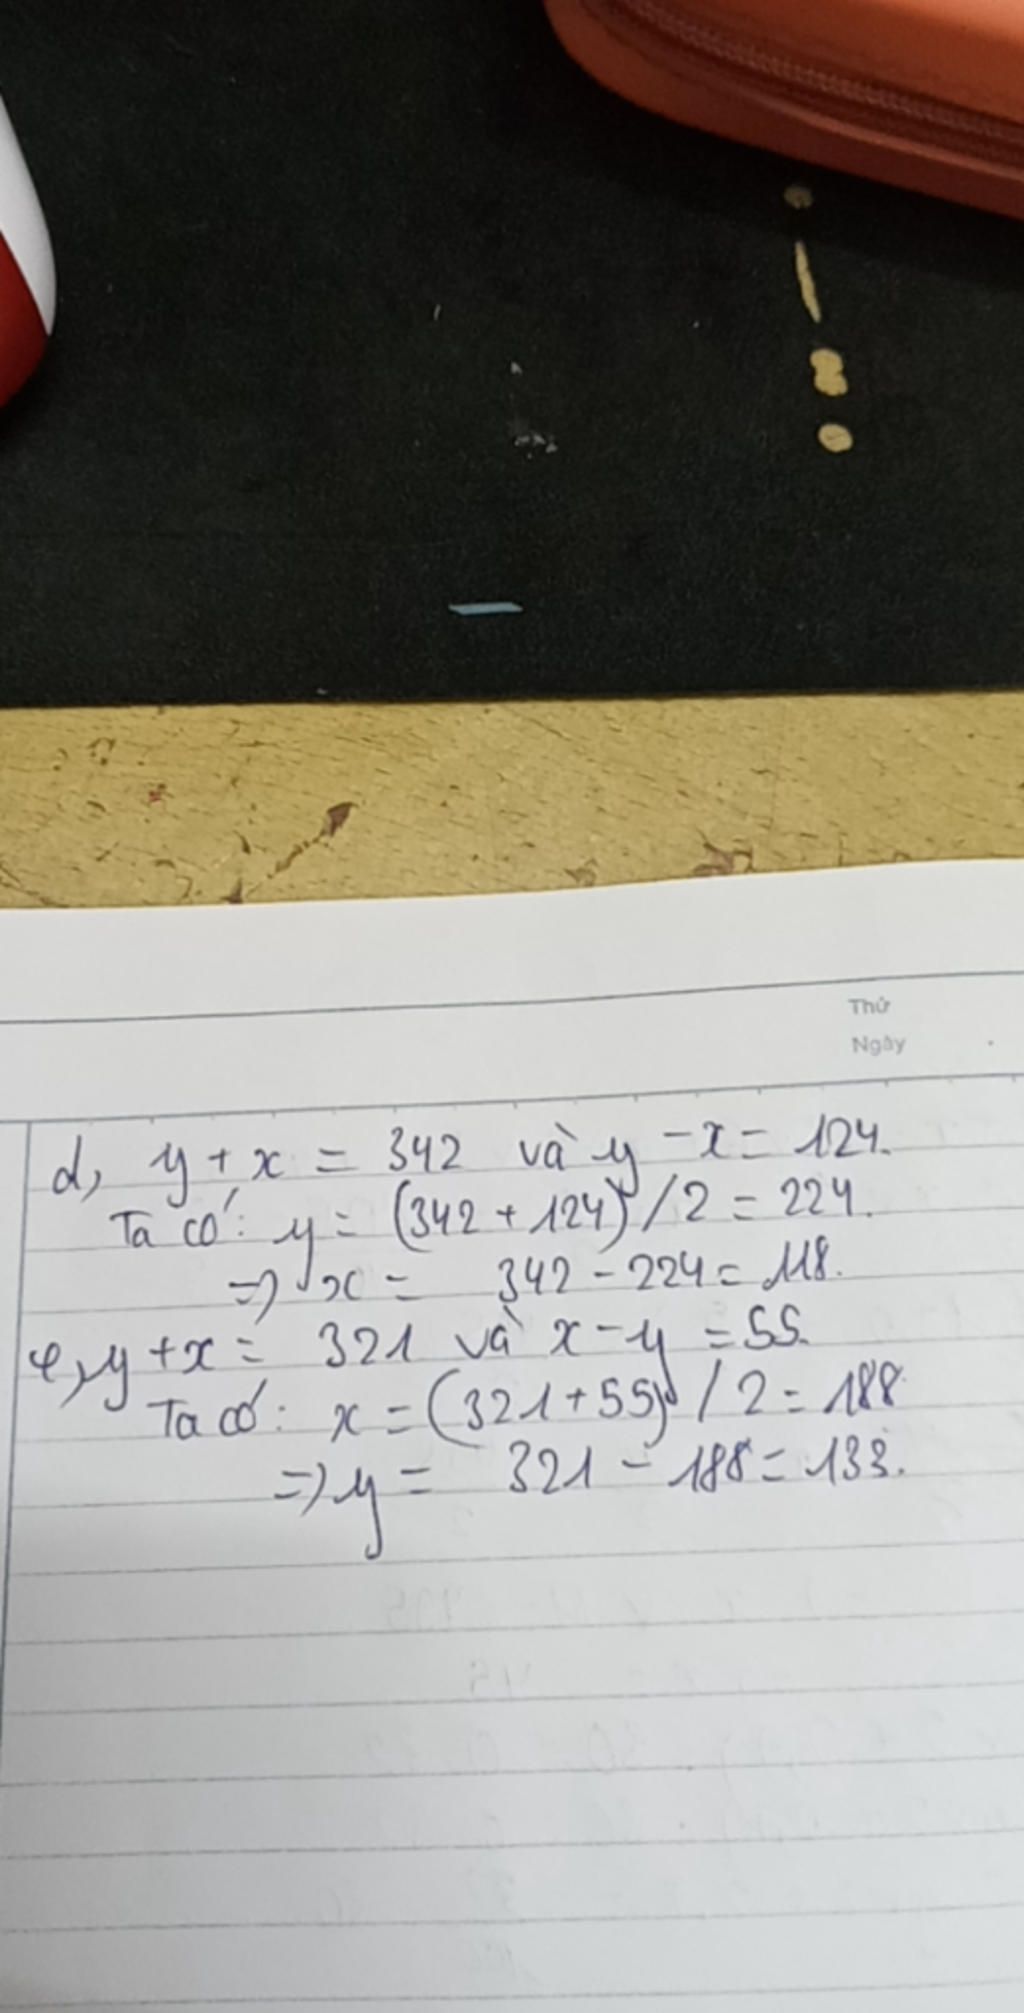 Thứ
Ngày
d, y + x = 342 và y - x = 124.
Ta có: y = (342 + 124) / 2 = 224.
=> x = 342 - 224 = 118.
e, y + x = 321 và x - y = 55.
Ta có: x = (321 + 55) / 2 = 188
=> y = 321 - 188 = 133.